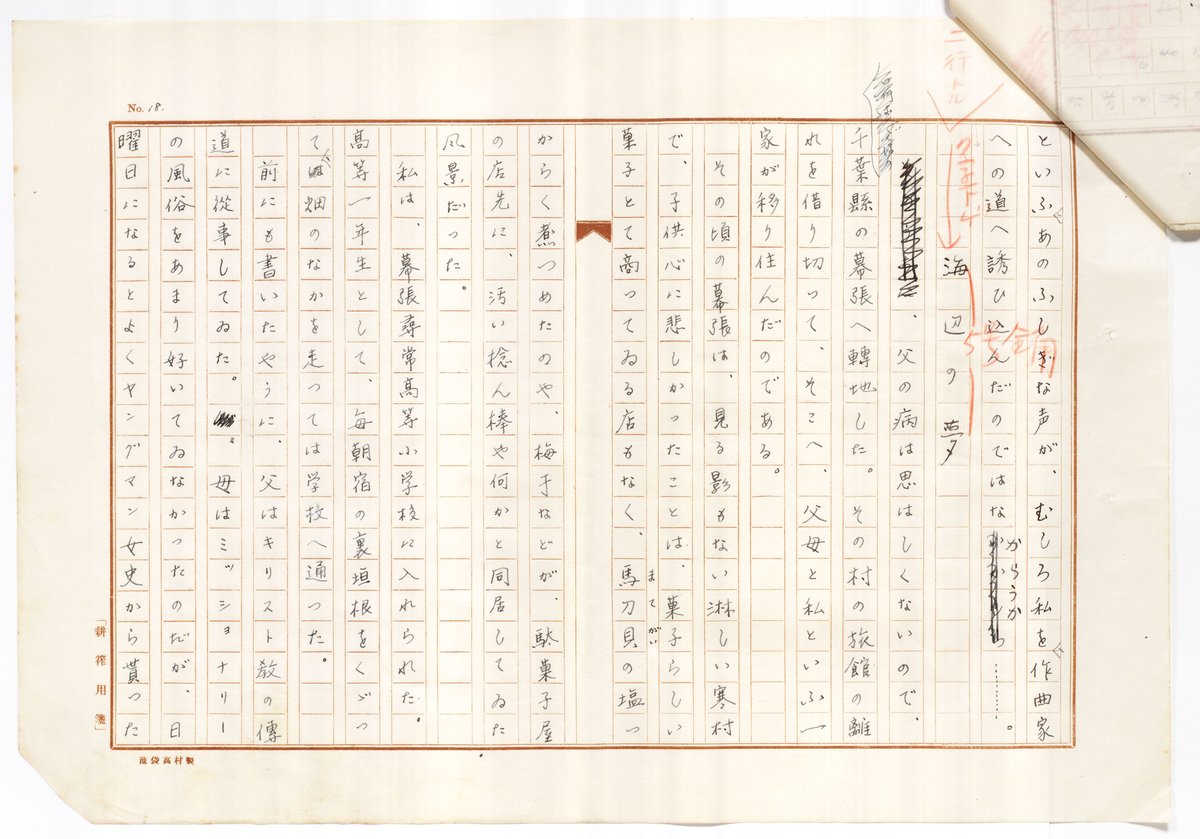 No. 18.
といふあのふしぎな声が、むしろ私を作曲家
への道へ誘ひ込んだのではな
からうか
………。
二行トル
海辺の夢
5号全角
、父の病は思はしくないので、
千葉縣の幕張へ轉地した。その村の旅館の離
れを借り切って、そこへ、父母と私といふ一
家が移り住んだのである。
その頃の幕張は、見る影もない淋しい寒村
で、子供心に悲しかったことは、菓子らしい
菓子とて商ってゐる店もなく、馬刀貝の塩っ
まてがい
からく煮つめたのや、梅干などが、駄菓子屋
の店先に、汚い捻ん棒や何かと同居してゐた
風景だった。
私は、幕張尋常高等小学校に入れられた。
高等一年生として、毎朝宿の裏垣根をくゞっ
て畑のなかを走っては学校へ通った。
前にも書いたやうに、父はキリスト教の傳
道に從事してゐた。母はミッショナリー
の風俗をあまり好いてゐなかったのだが、日
曜日になるとよくヤングマン女史から貰った
「耕筰用箋」
池袋高村製